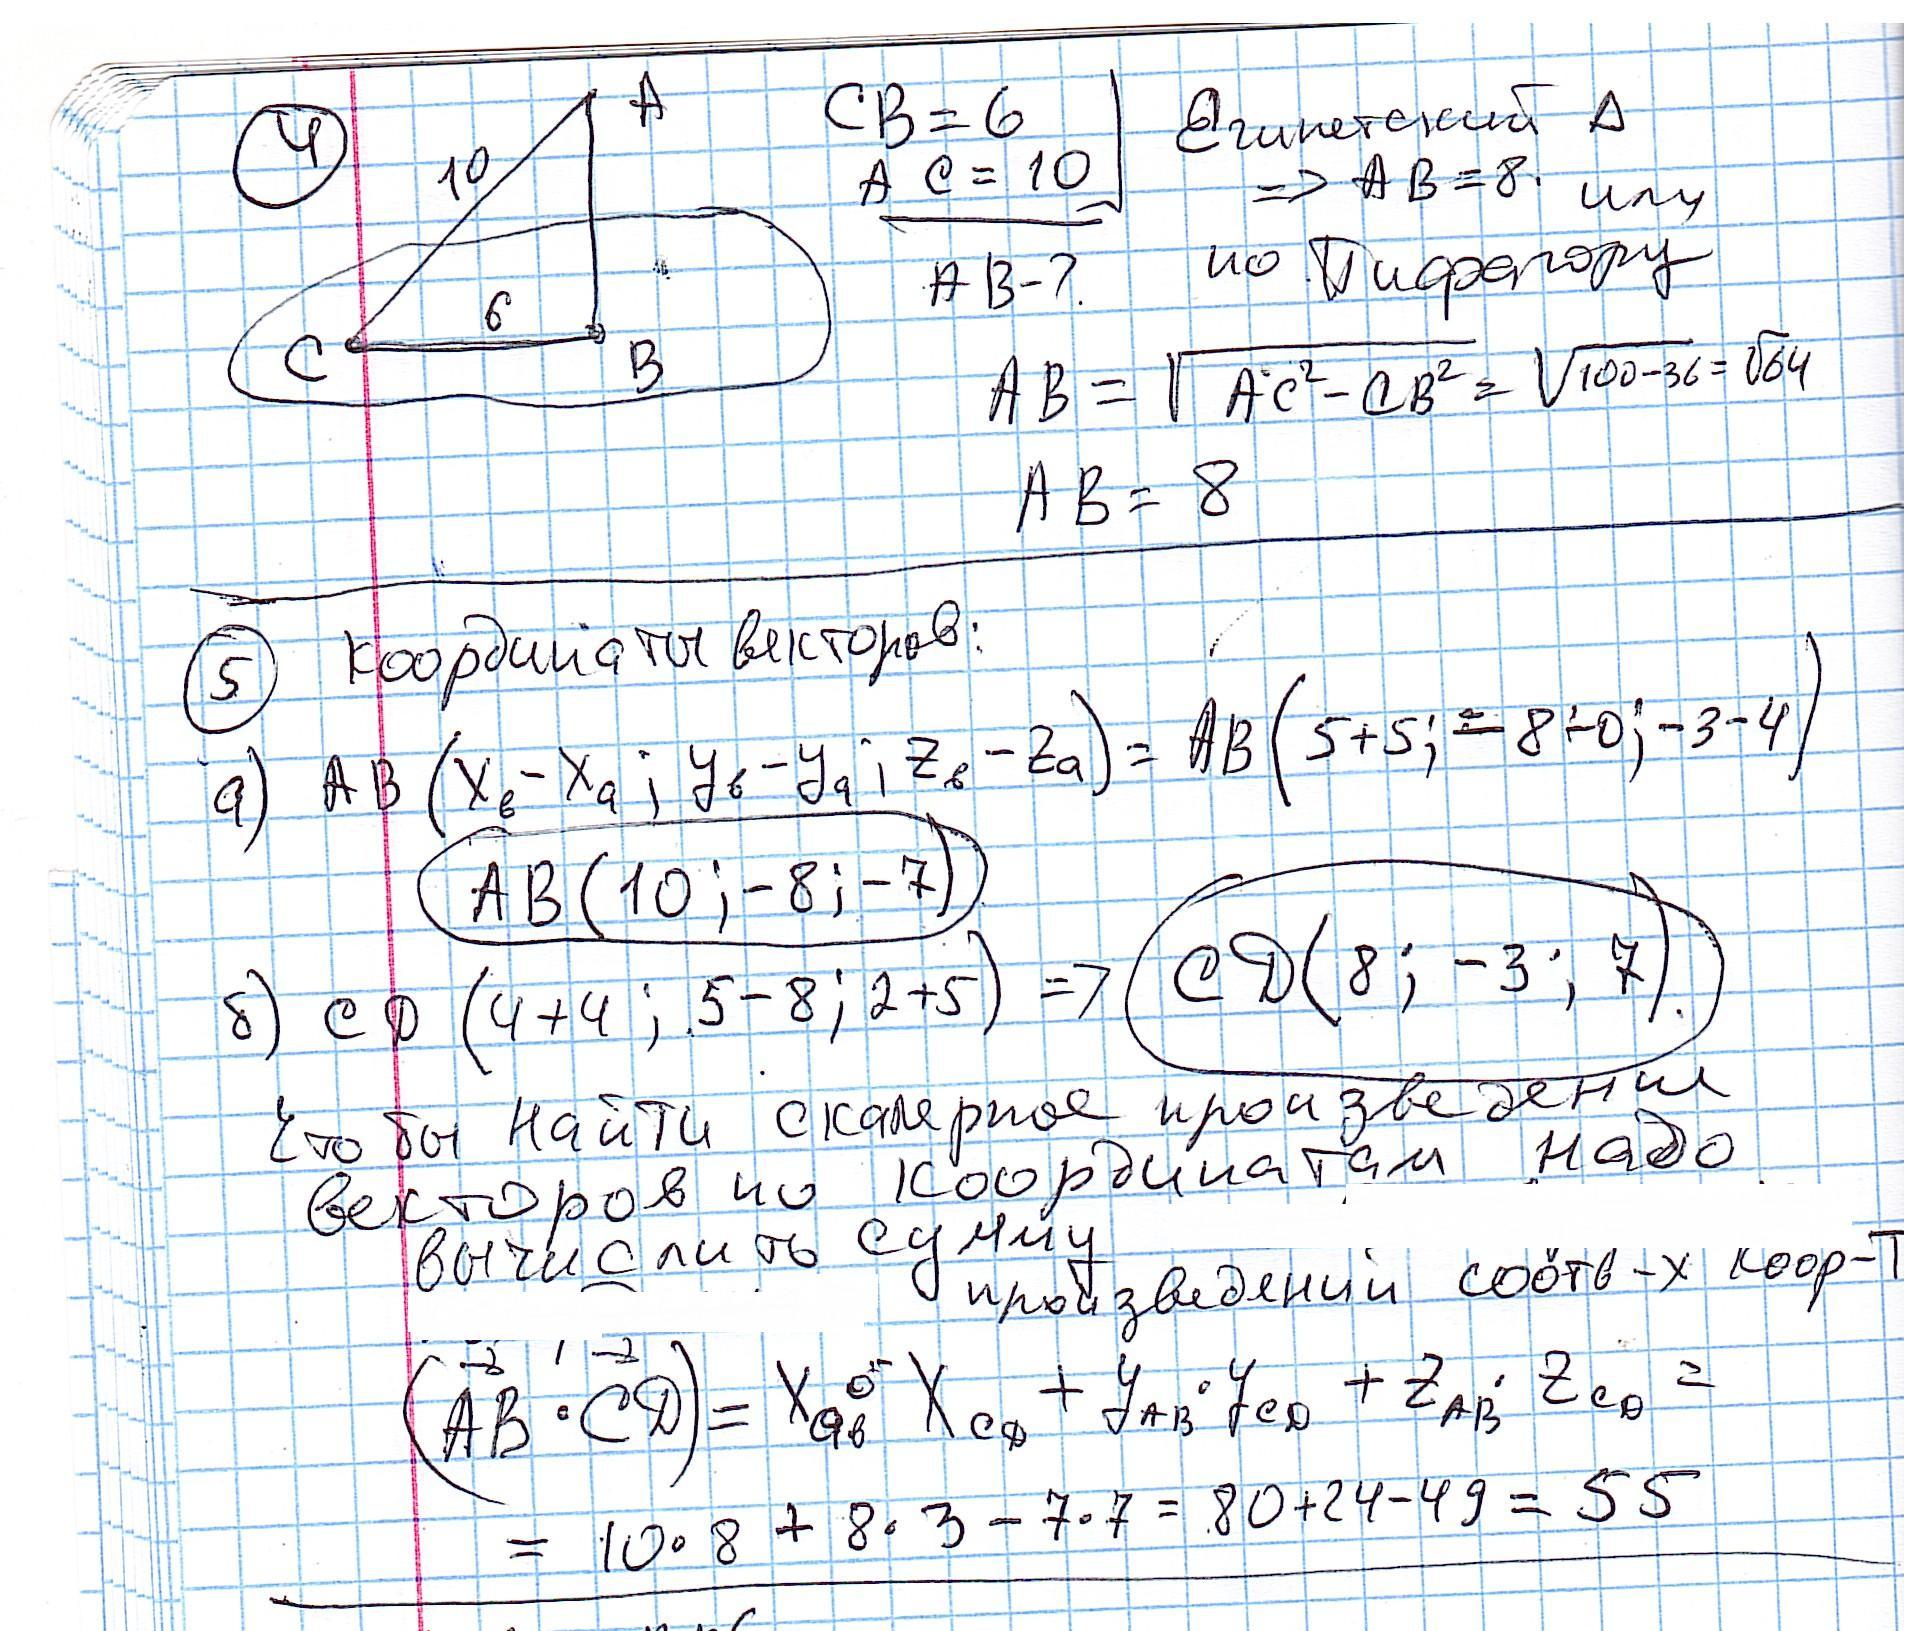 4
A
10
6
C
B
CB = 6
AC = 10
AB - ?
Египетский Δ
=> AB = 8. или
по Пифагору
AB = √AC² - CB² = √100-36 = √64
AB = 8
5 Координаты векторов:
а) AB (Xв - Xа; yв - yа; Zв - Zа) = AB (5+5; -8-0; -3-4)
AB (10; -8; -7)
б) CD (4+4; 5-8; 2+5) => CD (8; -3; 7).
Чтобы найти скалярное произведение
векторов по координатам надо
вычислить сумму
произведений соотв-х коор-т
(AB · CD) = Xав · XCD + yAB · yCD + ZAB · ZCD =
= 10·8 + 8·3 - 7·7 = 80+24-49 = 55